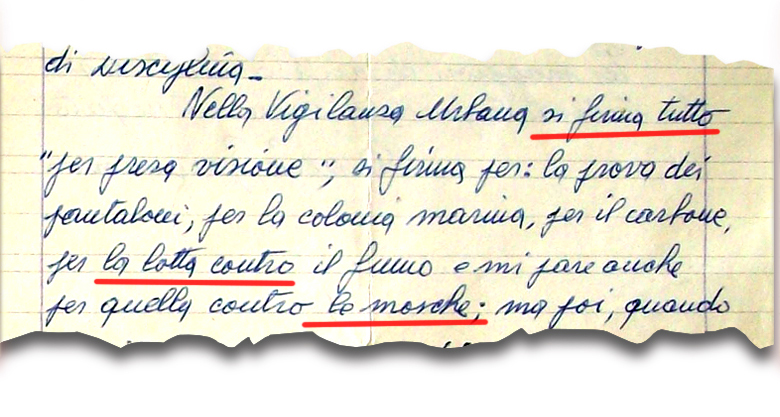 di disciplina_
Nella Vigilanza Urbana si firma tutto
"per presa visione", si firma per: la prova dei
pantaloni, per la colonia marina, per il carbone,
per la lotta contro il fumo e mi pare anche
per quella contro le mosche; ma poi, quando